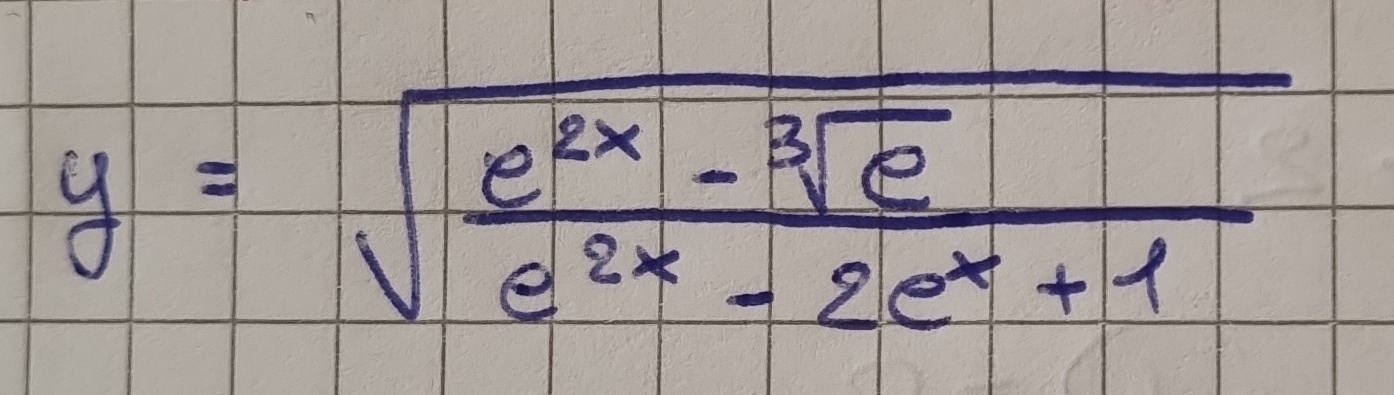 y = √((e^(2x) - ∛e)/(e^(2x) - 2e^x + 1))